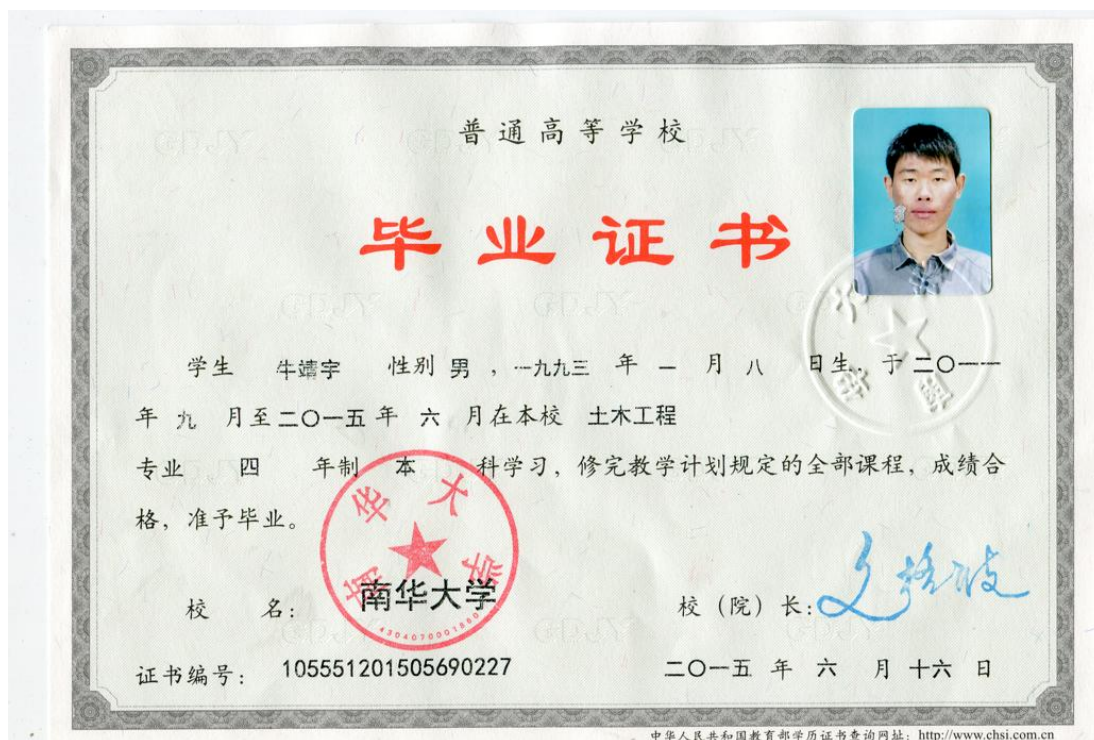 普通高等学校
毕业证书
学生 牛靖宇 性别 男 ，一九九三 年 一 月 八 日生，于 二〇一一
年 九 月至 二〇一五 年 六 月在本校 土木工程
专业 四 年制 本 科学习，修完教学计划规定的全部课程，成绩合
格，准予毕业。
南华大学
4304070001880
校 名： 南华大学
校（院）长：
证书编号： 105551201505690227
二〇一五 年 六 月 十六 日
中华人民共和国教育部学历证书查询网址：http://www.chsi.com.cn